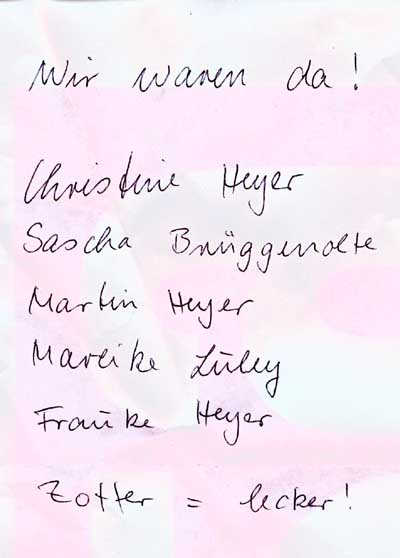 Wir waren da!
Christine Heyer
Sascha Brüggenolte
Martin Heyer
Mareike Lüley
Frauke Heyer
Zotter = lecker!